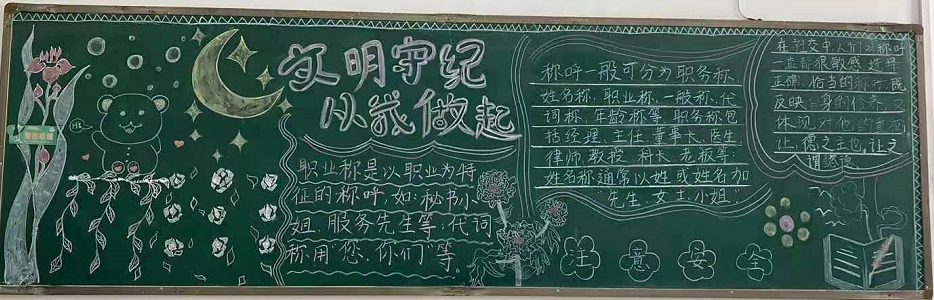 文明守纪
从我做起
Hi
职业称是以职业为特
征的称呼,如:秘书小
姐、服务先生等;代词
称用“您、你们”等
称呼一般可分为职务称
姓名称,职业称,一般称、代
词称,年龄称等 职务称包
括经理 主任 董事长 医生
律师 教授 科长 老板等;
姓名称通常以姓或姓名加
先生、女士、小姐
在社交中人们对称呼
一直都很敏感 选择
正确、恰当的称呼,既
反映自身的修养,又
体现对他的重视
让,德之主也,让之
谓懿德
注意安全